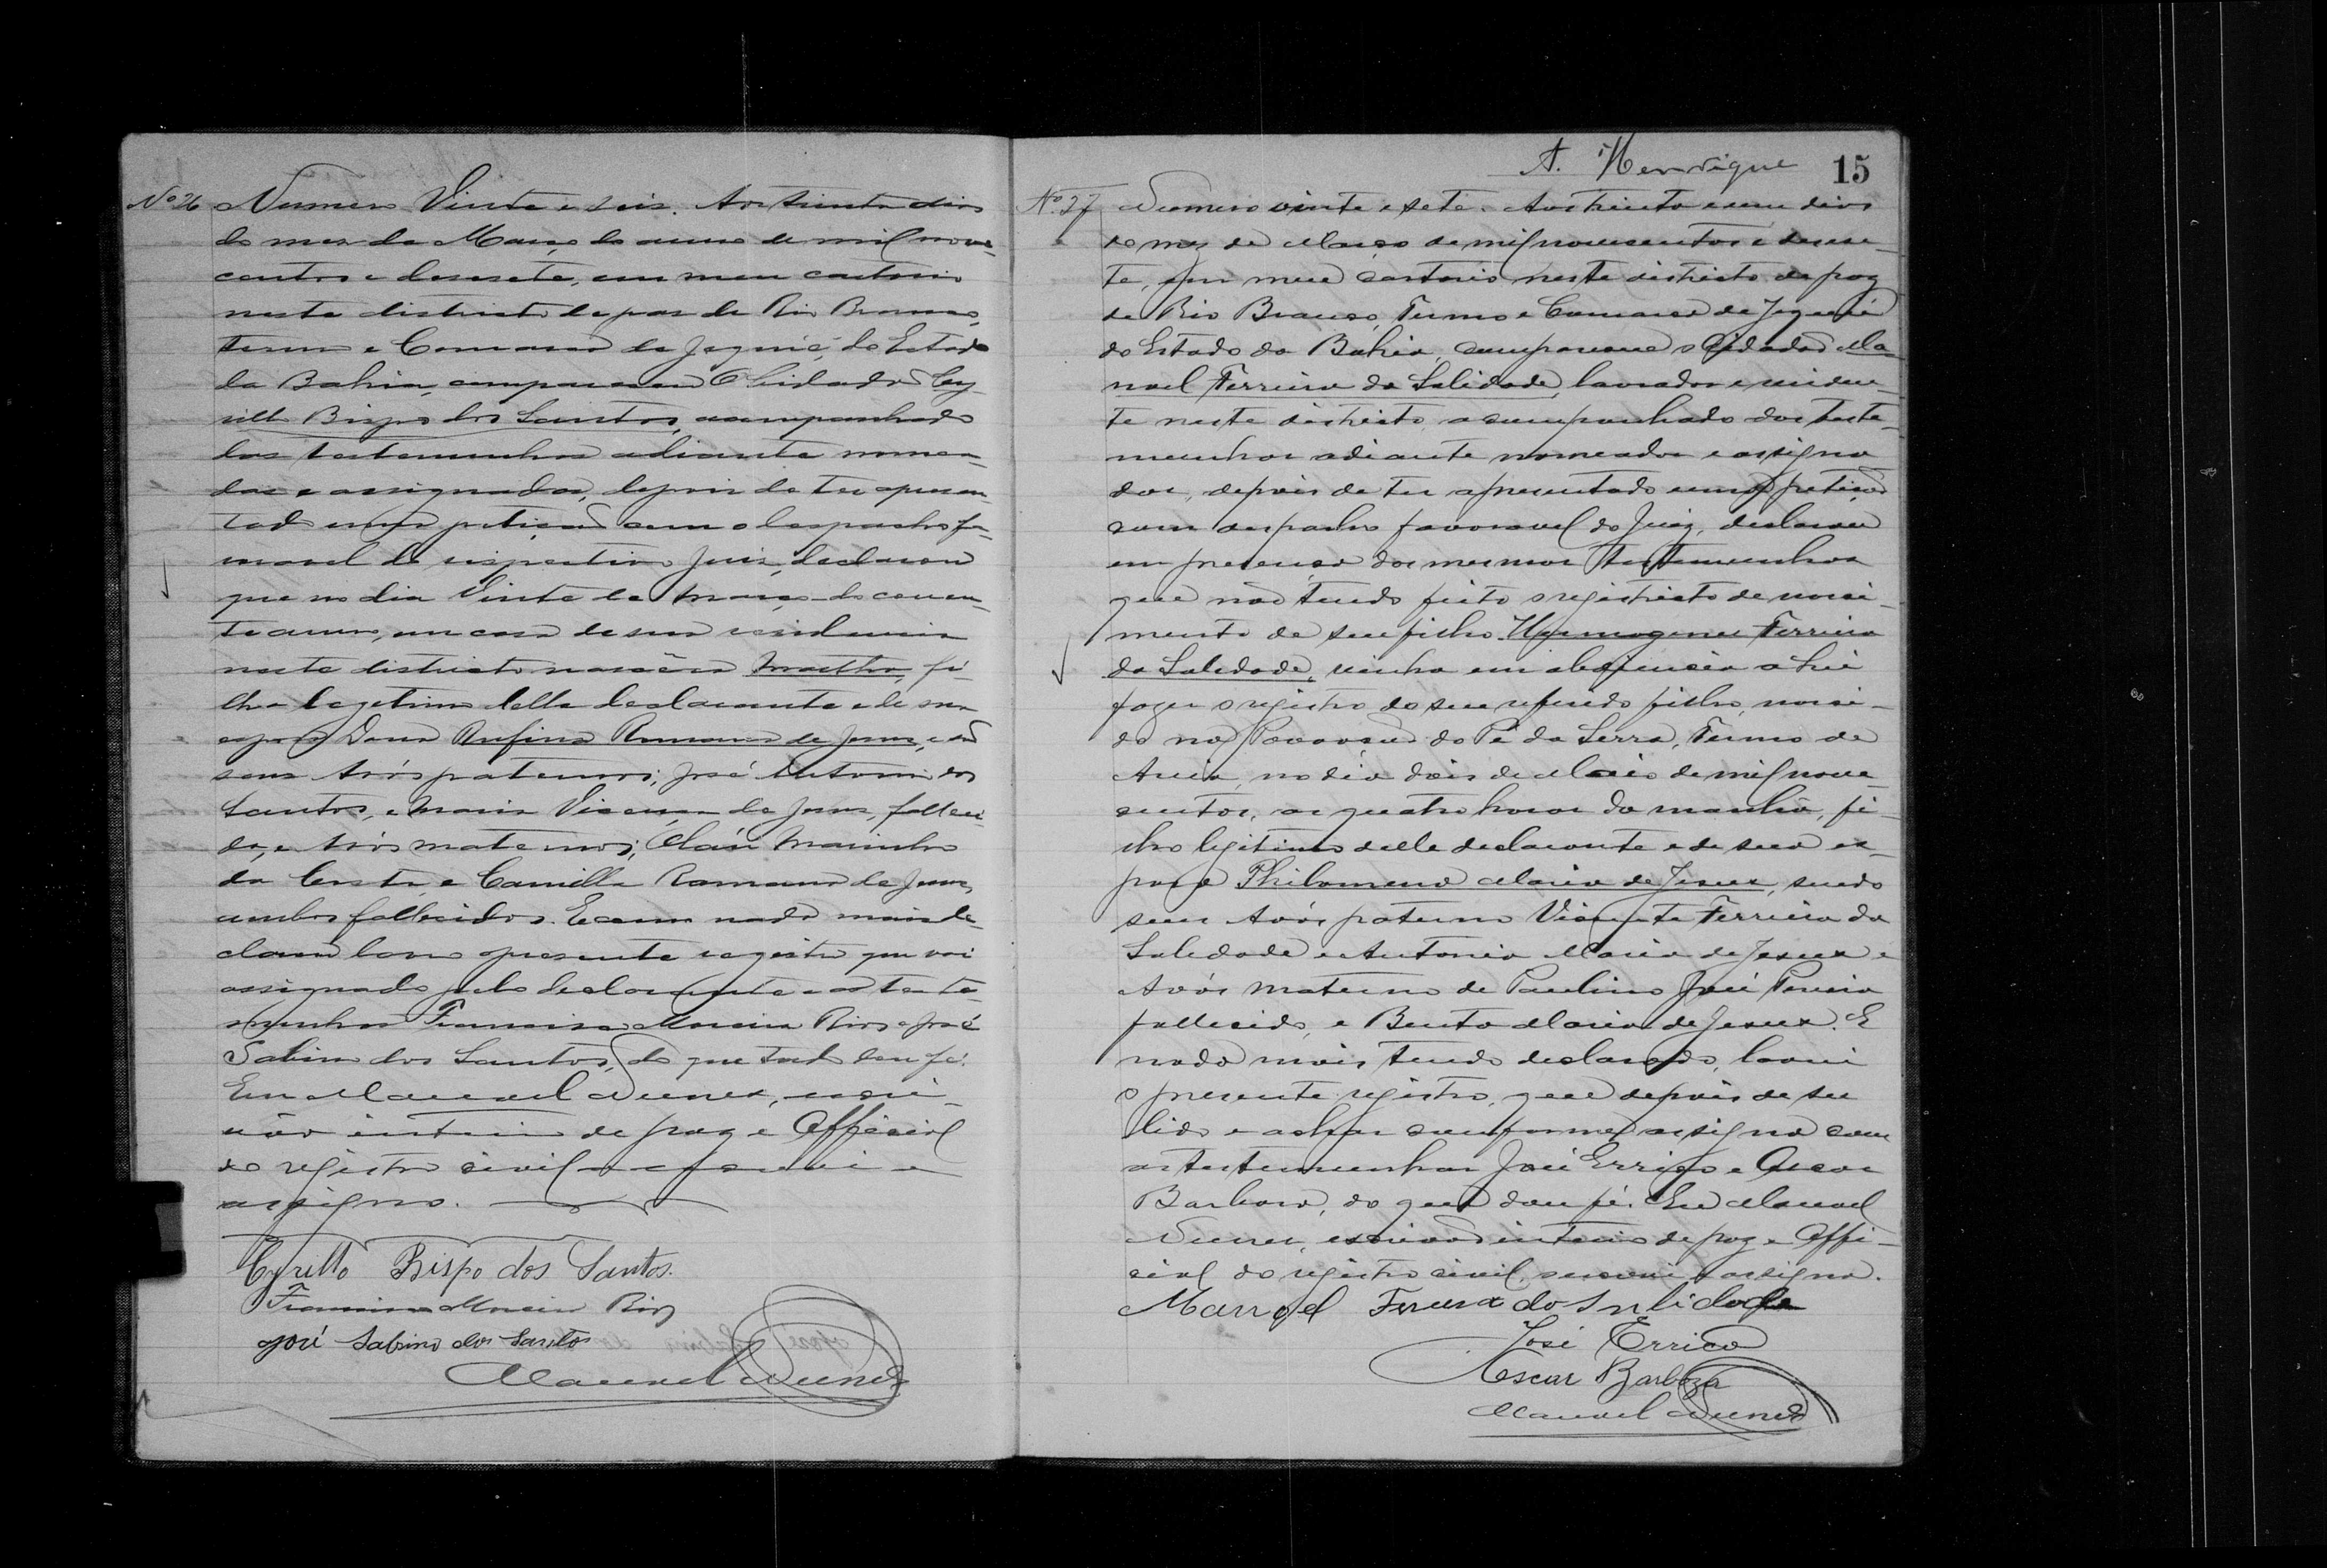 Nº 26 Numero Vinte e seis. Aos trinta dias
do mez de Março do anno de mil nove-
centos e desesete, em meu cartorio
neste districto de paz de Rio Branco,
Termo e Comarca de Jequié, do Estado
da Bahia, compareceu o Cidadão Cy-
rillo Bispo dos Santos, acompanhado
das testemunhas adiante nomea-
das e assignadas, depois de ter apresen-
tado uma petição com o despacho fa-
voravel do respectivo Juiz, declarou
que no dia Vinte de Março do corren-
te anno, em casa de sua residencia
neste districto nasceu Martha, fi-
lha legitima delle declarante e de sua
esposa Dona Rufina Romana de Jesus, e são
seus avós paternos; José Antonio dos
Santos, e Maria Vicencia de Jesus, falleci-
dos, e Avós maternos; Marinho
da Costa e Camilla Romana de Jesus,
ambos fallecidos. E como nada mais de-
clarou lavro o presente registro que vai
assignado pelo declarante e as teste-
munhas Francisco Moreira Rios e José
Sabino dos Santos, do que tudo dou fé.
Eu Manoel Nunes, escri-
vão interino de paz e Official
do registro civil o escrevi e
assigno.
Cyrillo Bispo dos Santos.
Francisco Moreira Rios
José Sabino dos Santos
Manoel Nunes
A. Henrique 15
Nº 27 Numero vinte e sete. Aos trinta e um dias
do mez de Março de mil novecentos e desese-
te, em meu cartorio neste districto de paz
de Rio Branco, Termo e Comarca de Jequié
do Estado da Bahia, compareceu o Cidadão Ma-
noel Ferreira da Solidade, lavrador e residen-
te neste districto, acompanhado das teste-
munhas adiante nomeadas e assigna-
das, depois de ter apresentado uma petição
com despacho favoravel do Juiz, declarou
em presença das mesmas testemunhas
que não tendo feito o registrato de nasci-
mento de seu filho Hermogenes Ferreira
da Soledade, vinha em obediencia a Lei
fazer o registro do seu referido filho, nasci-
do no Povoado do Pé da Serra, Termo de
Areia, no dia dois de Maio de mil nove-
centos, as quatro horas da manhã, fi-
lho legitimo delle declarante e de sua es-
posa Philomena Maria de Jesus, sendo
seus Avós paterno Vicente Ferreira da
Soledade e Antonia Maria de Jesus e
Avós materno de Paulino José Pereira
fallecido, e Benta Maria de Jesus. E
nada mais tendo declarado, lavrei
o presente registro, que depois de ser
lido e achar conforme, assigna com
as testemunhas José Errico e Oscar
Barbosa, do que dou fé. Eu Manoel
Nunes, escrivão interino de paz e Offi-
cial do registro civil, escrevi e assigno.
Manoel Ferera da Solidade
José Errico
Oscar Barboza
Manoel Nunes